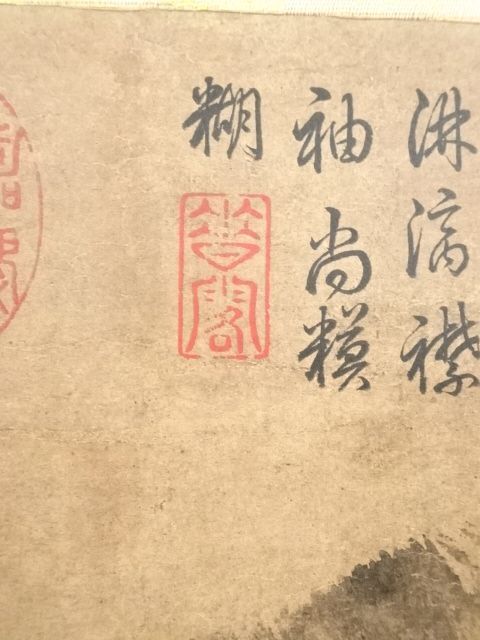 淋漓襟
袖尚糢
糊